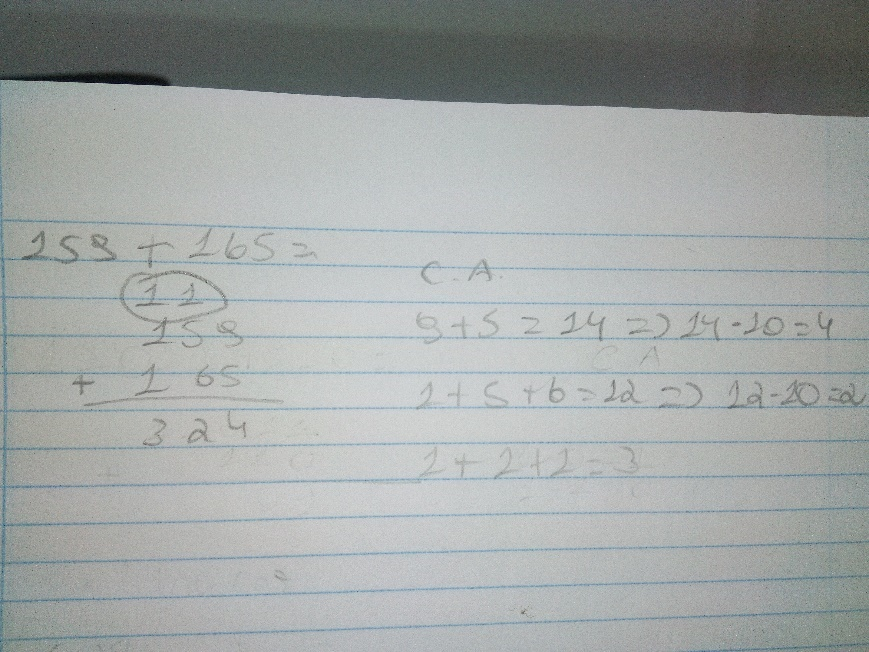 159 + 165 =
11
159
+ 165
324
C.A.
9+5 = 14 => 14-10=4
C A
1+5+6=12 => 12-10=2
1+1+1=3